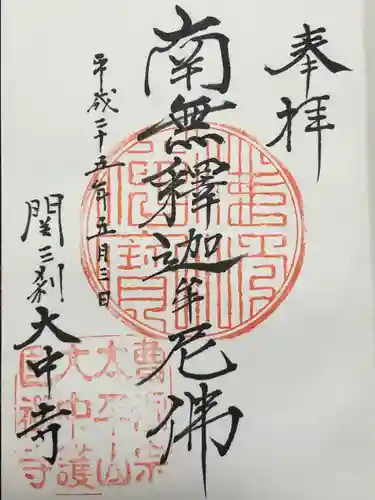 奉拝
南無釋迦牟尼佛
平成二十五年五月三日
関三刹
大中寺
曹洞宗
太平山
大中護
国禅寺